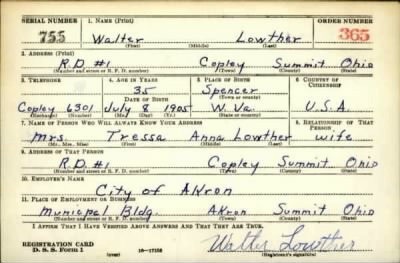 SERIAL NUMBER 1. NAME (Print) ORDER NUMBER
755 Walter Lowther 365
(First) (Middle) (Last)
2. ADDRESS (Print)
R.D. #1 Copley Summit Ohio
(Number and street or R. F. D. number) (Town) (County) (State)
3. TELEPHONE 4. AGE IN YEARS 5. PLACE OF BIRTH 6. COUNTRY OF CITIZENSHIP
35 Spencer
DATE OF BIRTH (Town or county)
Copley 6301 July 8 1905 W. Va. U.S.A.
(Exchange) (Number) (Mo.) (Day) (Yr.) (State or country)
7. NAME OF PERSON WHO WILL ALWAYS KNOW YOUR ADDRESS 8. RELATIONSHIP OF THAT PERSON
Mrs. Tressa Anna Lowther wife
(Mr., Mrs., Miss) (First) (Middle) (Last)
9. ADDRESS OF THAT PERSON
R.D. #1 Copley Summit Ohio
(Number and street or R. F. D. number) (Town) (County) (State)
10. EMPLOYER'S NAME
City of Akron
11. PLACE OF EMPLOYMENT OR BUSINESS
Municipal Bldg. Akron Summit Ohio
(Number and street or R. F. D. number) (Town) (County) (State)
I AFFIRM THAT I HAVE VERIFIED ABOVE ANSWERS AND THAT THEY ARE TRUE.
REGISTRATION CARD
D. S. S. Form 1 (over) Walter Lowther
(Registrant's signature)